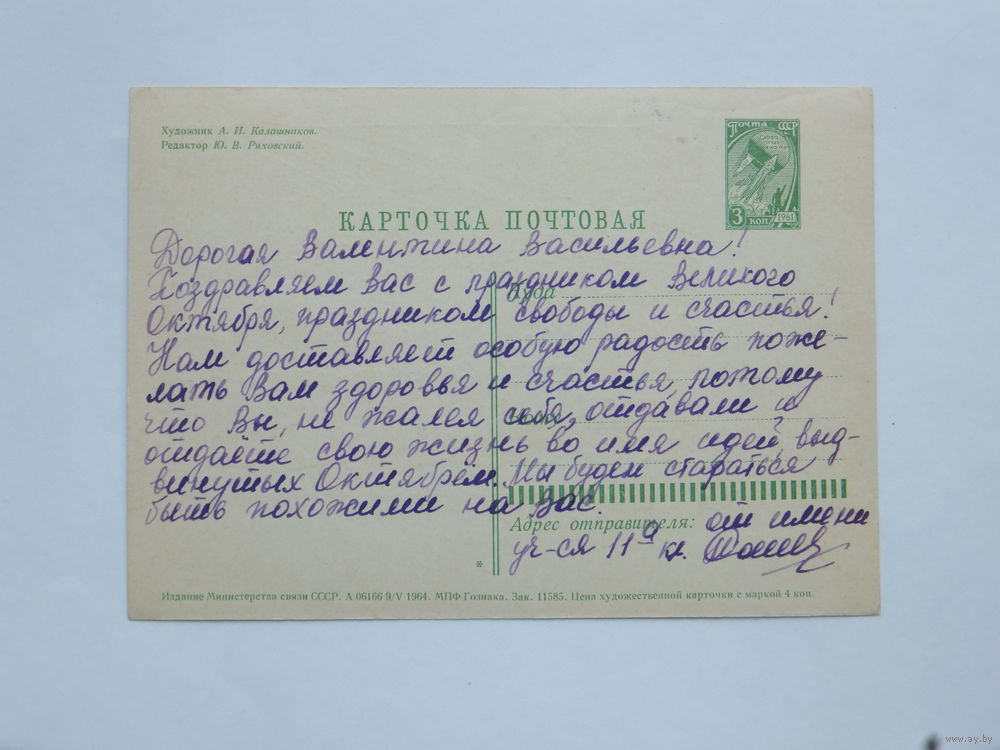 Художник А. И. Калашников.
Редактор Ю. В. Ряховский.
Почта СССР
3 коп
1961
КАРТОЧКА ПОЧТОВАЯ
Дорогая Валентина Васильевна!
Поздравляем Вас с праздником Великого
Куда
Октября, праздником свободы и счастья!
Нам доставляет особую радость поже-
лать Вам здоровья и счастья, потому
что Вы, не жалея себя, отдавали и
отдаёте свою жизнь во имя идей, выд-
винутых Октябрём. Мы будем стараться
быть похожими на Вас.
Адрес отправителя: от имени
уч-ся 11а кл.
*
Издание Министерства связи СССР. А 06166 9/V 1964. МПФ Гознака. Зак. 11585. Цена художественной карточки с маркой 4 коп.
www.ay.by